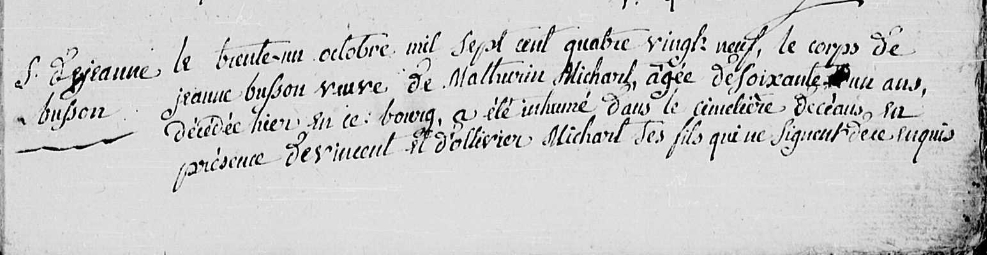 S. de jeanne
busson
le trente-un octobre mil sept cent quatre vingt neuf, le corps de
jeanne busson veuve de Mathurin Michart, âgée de soixante un ans,
décédée hier en ce bourg, a été inhumé dans le cimetière de céans, en
présence de vincent et d'ollivier Michart ses fils qui ne signent de ce enquis